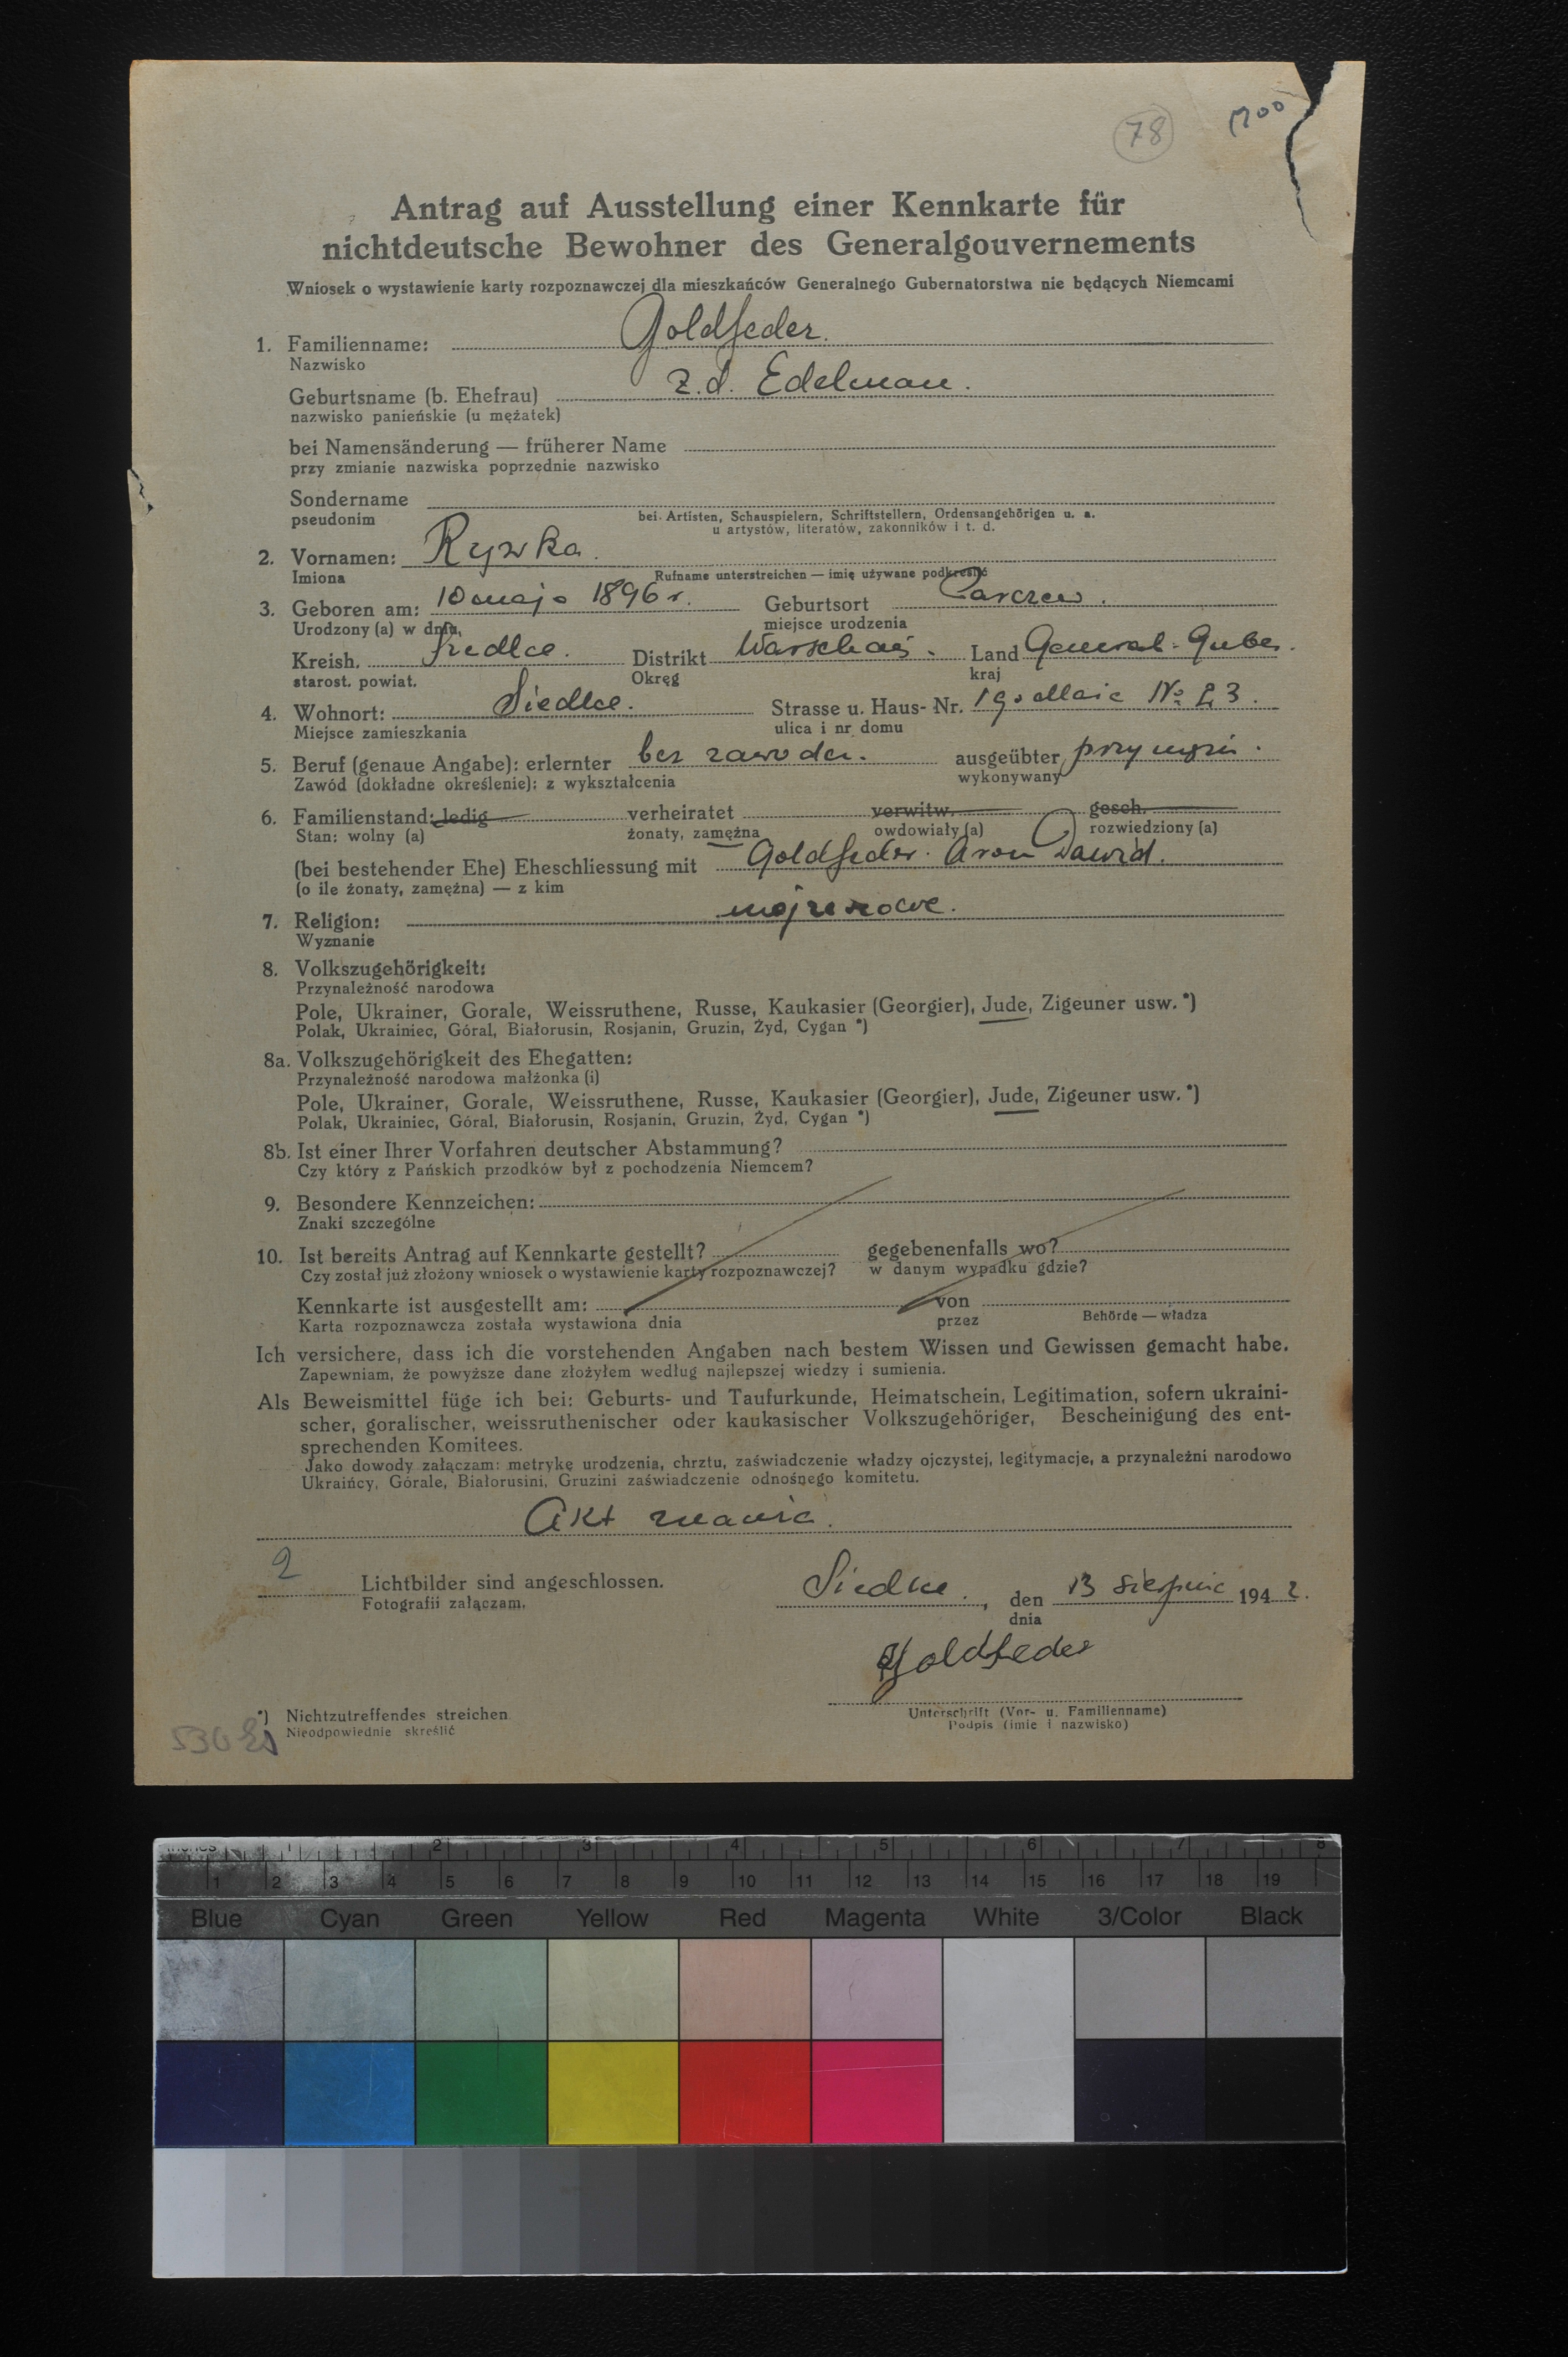 78 1700
Antrag auf Ausstellung einer Kennkarte für
nichtdeutsche Bewohner des Generalgouvernements
Wniosek o wystawienie karty rozpoznawczej dla mieszkańców Generalnego Gubernatorstwa nie będących Niemcami
1. Familienname: Goldfeder.
Nazwisko
Geburtsname (b. Ehefrau) z.d. Edelman.
nazwisko panieńskie (u mężatek)
bei Namensänderung — früherer Name
przy zmianie nazwiska poprzędnie nazwisko
Sondername
pseudonim bei Artisten, Schauspielern, Schriftstellern, Ordensangehörigen u. a.
u artystów, literatów, zakonników i t. d.
2. Vornamen: Rywka.
Imiona Rufname unterstreichen — imię używane podkreślić
3. Geboren am: 10 maja 1896 r. Geburtsort Parczew.
Urodzony (a) w dniu, miejsce urodzenia
Kreish. Siedlce. Distrikt Warschau. Land General-Guber.
starost. powiat. Okręg kraj
4. Wohnort: Siedlce. Strasse u. Haus-Nr. 1go Maia № 23.
Miejsce zamieszkania ulica i nr domu
5. Beruf (genaue Angabe): erlernter bez zawodu. ausgeübter przy mężu.
Zawód (dokładne określenie): z wykształcenia wykonywany
6. Familienstand: ledig verheiratet verwitw. gesch.
Stan: wolny (a) żonaty, zamężna owdowiały (a) rozwiedziony (a)
(bei bestehender Ehe) Eheschliessung mit Goldfeder. Aron Dawid.
(o ile żonaty, zamężna) — z kim
7. Religion: mojżeszowe.
Wyznanie
8. Volkszugehörigkeit:
Przynależność narodowa
Pole, Ukrainer, Gorale, Weissruthene, Russe, Kaukasier (Georgier), Jude, Zigeuner usw.*)
Polak, Ukrainiec, Góral, Białorusin, Rosjanin, Gruzin, Żyd, Cygan *)
8a. Volkszugehörigkeit des Ehegatten:
Przynależność narodowa małżonka (i)
Pole, Ukrainer, Gorale, Weissruthene, Russe, Kaukasier (Georgier), Jude, Zigeuner usw.*)
Polak, Ukrainiec, Góral, Białorusin, Rosjanin, Gruzin, Żyd, Cygan *)
8b. Ist einer Ihrer Vorfahren deutscher Abstammung?
Czy który z Pańskich przodków był z pochodzenia Niemcem?
9. Besondere Kennzeichen:
Znaki szczególne
10. Ist bereits Antrag auf Kennkarte gestellt? gegebenenfalls wo?
Czy został już złożony wniosek o wystawienie karty rozpoznawczej? w danym wypadku gdzie?
Kennkarte ist ausgestellt am: von
Karta rozpoznawcza została wystawiona dnia przez Behörde — władza
Ich versichere, dass ich die vorstehenden Angaben nach bestem Wissen und Gewissen gemacht habe.
Zapewniam, że powyższe dane złożyłem według najlepszej wiedzy i sumienia.
Als Beweismittel füge ich bei: Geburts- und Taufurkunde, Heimatschein, Legitimation, sofern ukraini-
scher, goralischer, weissruthenischer oder kaukasischer Volkszugehöriger, Bescheinigung des ent-
sprechenden Komitees.
Jako dowody załączam: metrykę urodzenia, chrztu, zaświadczenie władzy ojczystej, legitymacje, a przynależni narodowo
Ukraińcy, Górale, Białorusini, Gruzini zaświadczenie odnośnego komitetu.
Akt znania.
2 Lichtbilder sind angeschlossen. Siedlce., den 13 sierpnia 1942.
Fotografii załączam. dnia
Goldfeder
Unterschrift (Vor- u. Familienname)
Podpis (imie i nazwisko)
*) Nichtzutreffendes streichen
Nieodpowiednie skreślić
inches 1 2 3 4 5 6 7 8
1 2 3 4 5 6 7 8 9 10 11 12 13 14 15 16 17 18 19
Blue Cyan Green Yellow Red Magenta White 3/Color Black